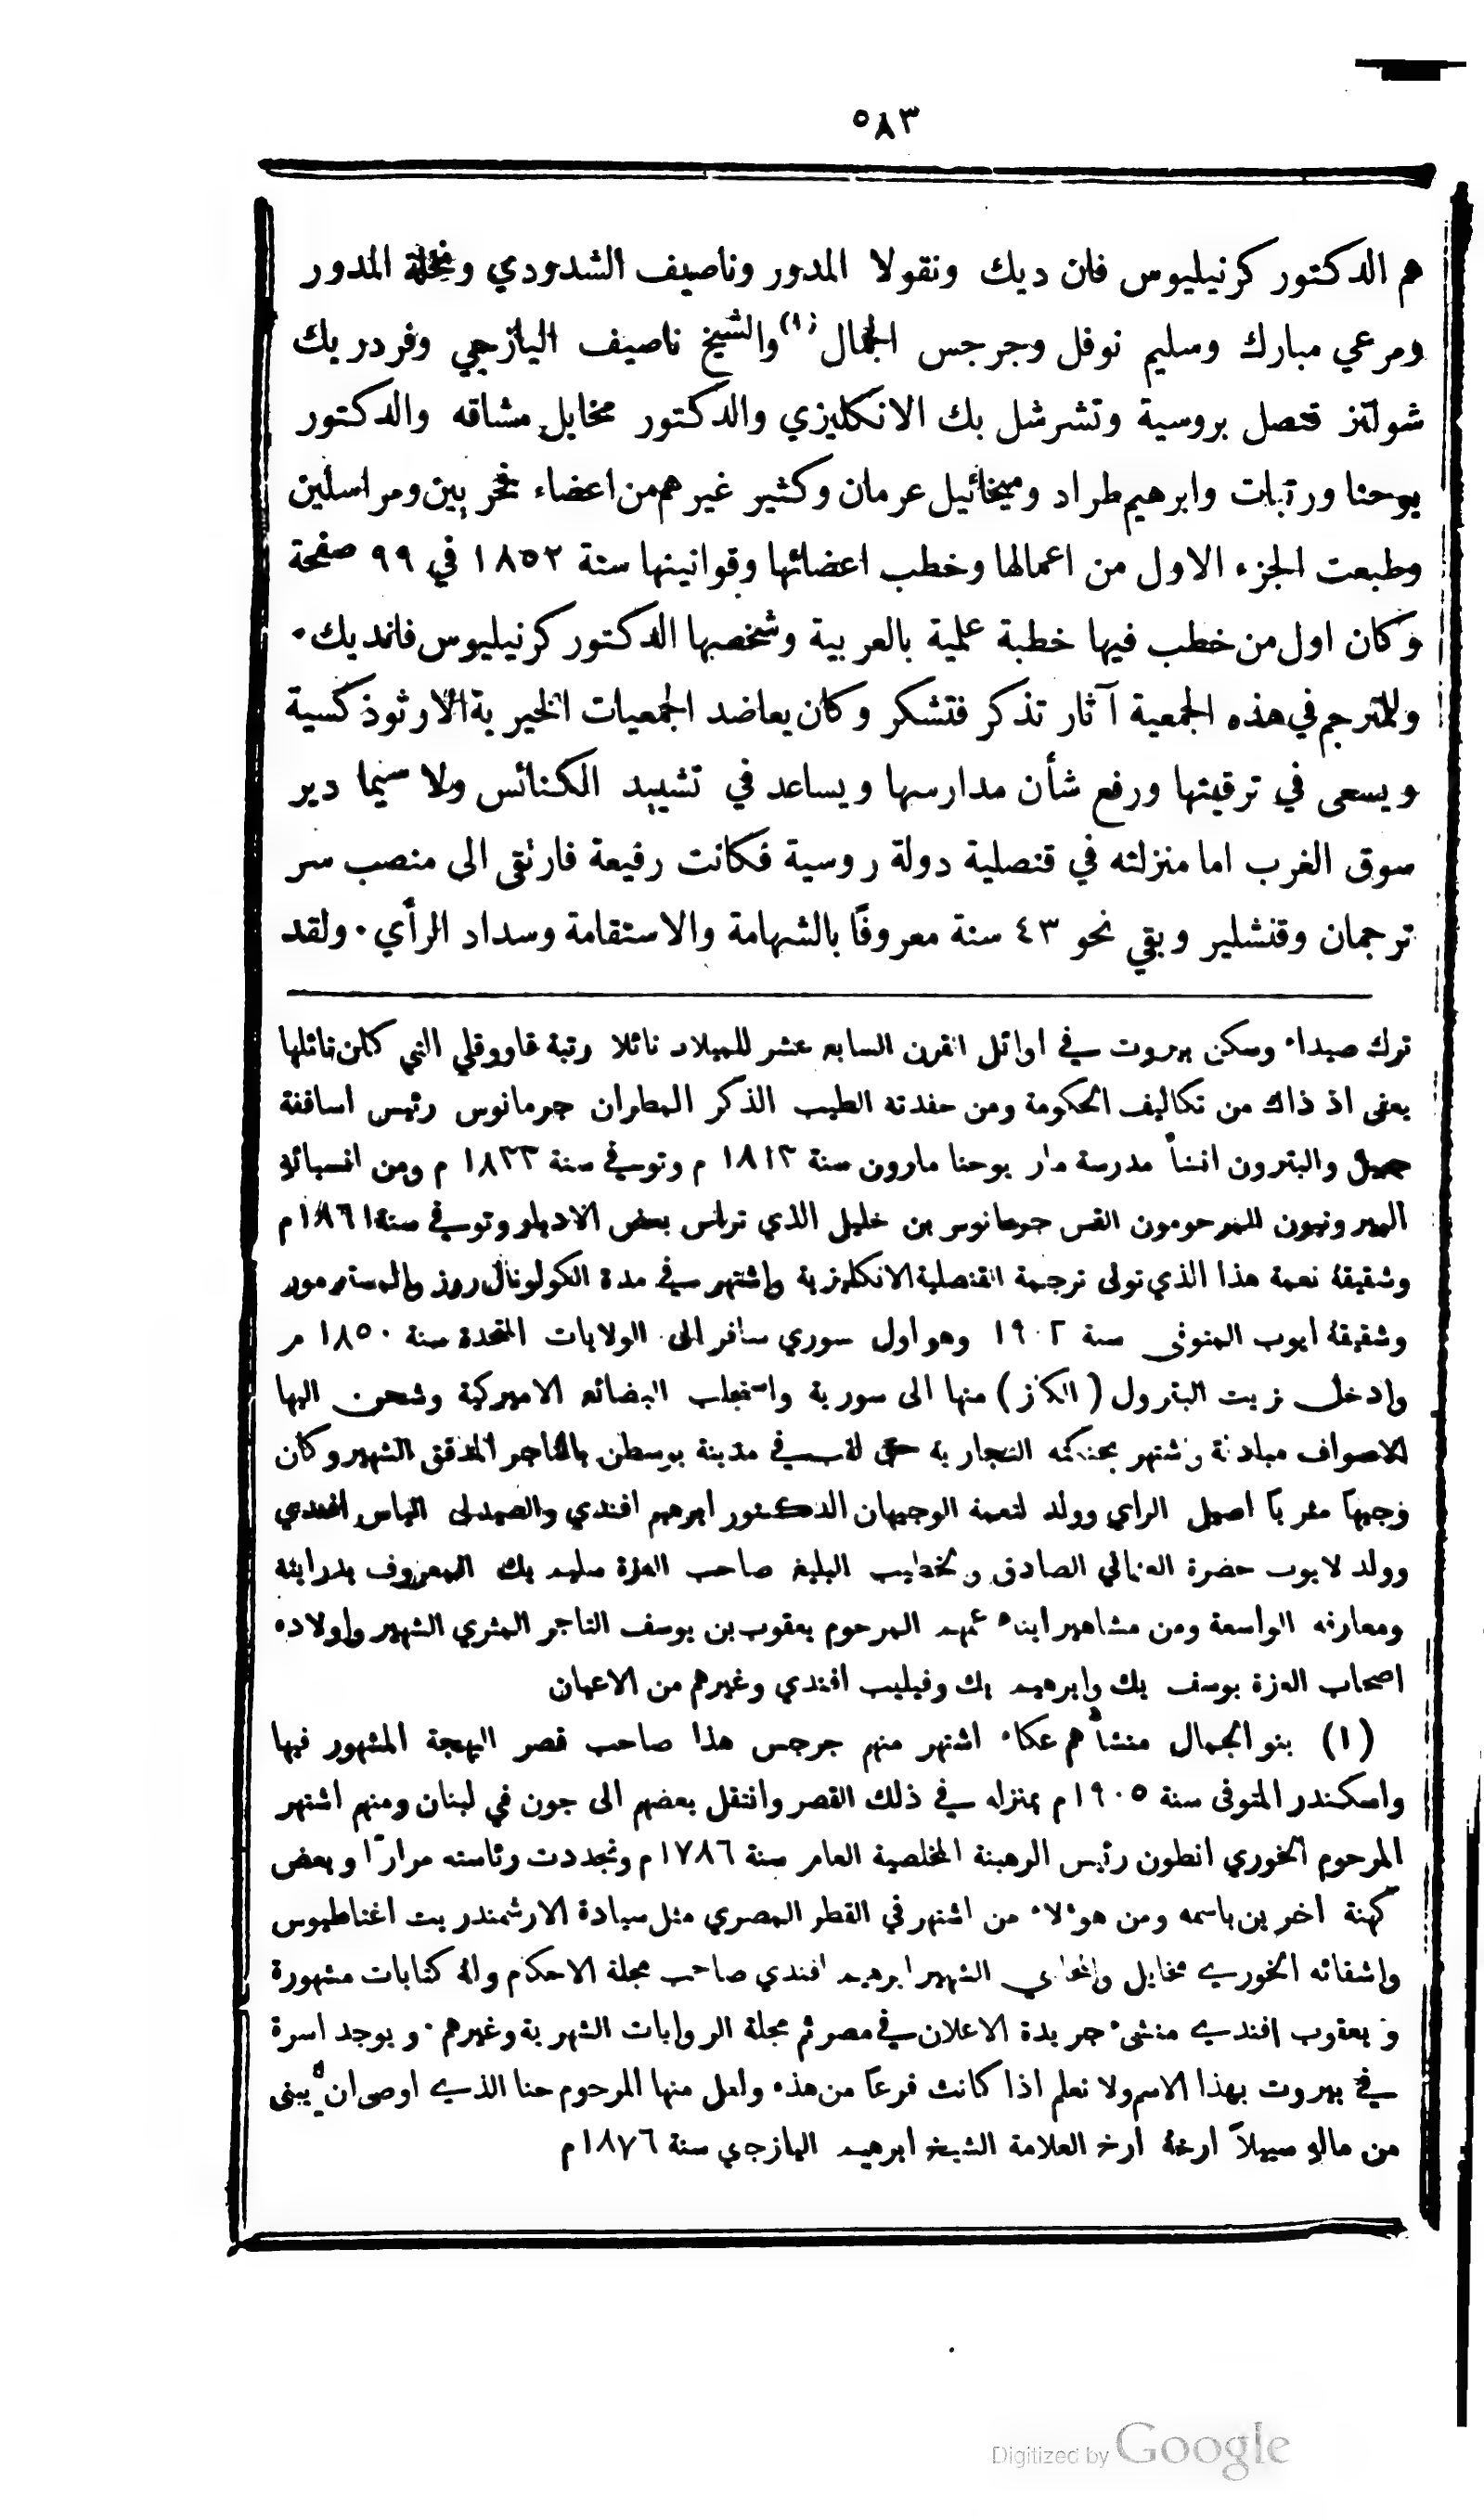 ٥٨٣
هم الدكتور كرنيليوس فان ديك ونقولا المدور وناصيف الشدودي ونخلة المدور
ومرعي مبارك وسليم نوفل وجرجس الجمال (١) والشيخ ناصيف اليازجي وفردريك
شولتز قنصل بروسية وتشرشل بك الانكليزي والدكتور مخايل مشاقه والدكتور
يوحنا ورتبات وابرهيم طراد وميخائيل عرمان وكثير غيرهم من اعضاء فخريين ومراسلين
وطبعت الجزء الاول من اعمالها وخطب اعضائها وقوانينها سنة ١٨٥٢ في ٩٩ صفحة
وكان اول من خطب فيها خطبة علمية بالعربية وشخصها الدكتور كرنيليوس فانديك ٠
وللمترجم في هذه الجمعية آثار تذكر فتشكر وكان يعاضد الجمعيات الخيرية الارثوذكسية
ويسعى في ترقيتها ورفع شأن مدارسها ويساعد في تشييد الكنائس ولا سيما دير
سوق الغرب اما منزلته في قنصلية دولة روسية فكانت رفيعة فارتقى الى منصب سر
ترجمان وقنشلير وبقي نحو ٤٣ سنة معروفًا بالشهامة والاستقامة وسداد الرأي ٠ ولقد
ترك صيداء وسكن بيروت في اوائل القرن السابع عشر للميلاد نائلا رتبة قاووقلي التي كان نائلها
يعفى اذ ذاك من تكاليف الحكومة ومن حفدته الطيب الذكر المطران جرمانوس رئيس اساقفة
جبيل والبترون انشأ مدرسة مار يوحنا مارون سنة ١٨١٢ م وتوفي سنة ١٨٣٣ م ومن انسبائه
البيروتيون المرحومون القس جرمانوس بن خليل الذي ترأس بعض الاديار وتوفي سنة ١٨٦١ م
وشقيقه نعمة هذا الذي تولى ترجمة القنصلية الانكليزية واشتهر في مدة الكولونال روز والمستر مور
وشقيقه ايوب المتوفى سنة ١٩٠٢ وهو اول سوري سافر الى الولايات المتحدة سنة ١٨٥٠ م
وادخل زيت البترول (الكاز) منها الى سورية واستجلب البضائع الاميركية وشحن اليها
الاصواف مبادلة واشتهر بحنكته التجارية حتى لقب في مدينة بوسطن بالتاجر المدقق الشهير وكان
وجيهًا مثريًا اصيل الراي وولد لنعمة الوجيهان الدكتور ابرهيم افندي والصيدلي الياس افندي
وولد لايوب حضرة العثماني الصادق والخطيب البليغ صاحب العزة سليم بك المعروف بدرايته
ومعارفه الواسعة ومن مشاهير ابناء عمهم المرحوم يعقوب بن يوسف التاجر المثري الشهير واولاده
اصحاب العزة يوسف بك وابرهيم بك وفيليب افندي وغيرهم من الاعيان
(١) بنو الجمال منشأهم عكاء اشتهر منهم جرجس هذا صاحب قصر البهجة المشهور فيها
واسكندر المتوفى سنة ١٩٠٥ م بمنزله في ذلك القصر وانتقل بعضهم الى جون في لبنان ومنهم اشتهر
المرحوم الخوري انطون رئيس الرهبنة المخلصية العام سنة ١٧٨٦ م وتجددت رئاسته مرارًا وبعض
كهنة اخرين باسمه ومن هؤلاء من اشتهر في القطر المصري مثل سيادة الارشمندريت اغناطيوس
واشقائه الخوري مخايل والمحامي الشهير ابرهيم افندي صاحب مجلة الاحكام وله كتابات مشهورة
ويعقوب افندي منشىء جريدة الاعلان في مصر ثم مجلة الروايات الشهرية وغيرهم ٠ ويوجد اسرة
في بيروت بهذا الاسم ولا نعلم اذا كانت فرعًا من هذه ولعل منها المرحوم حنا الذي اوصى ان يبنى
من ماله سبيلاً ارخه العلامة الشيخ ابرهيم اليازجي سنة ١٨٧٦ م
Digitized by Google